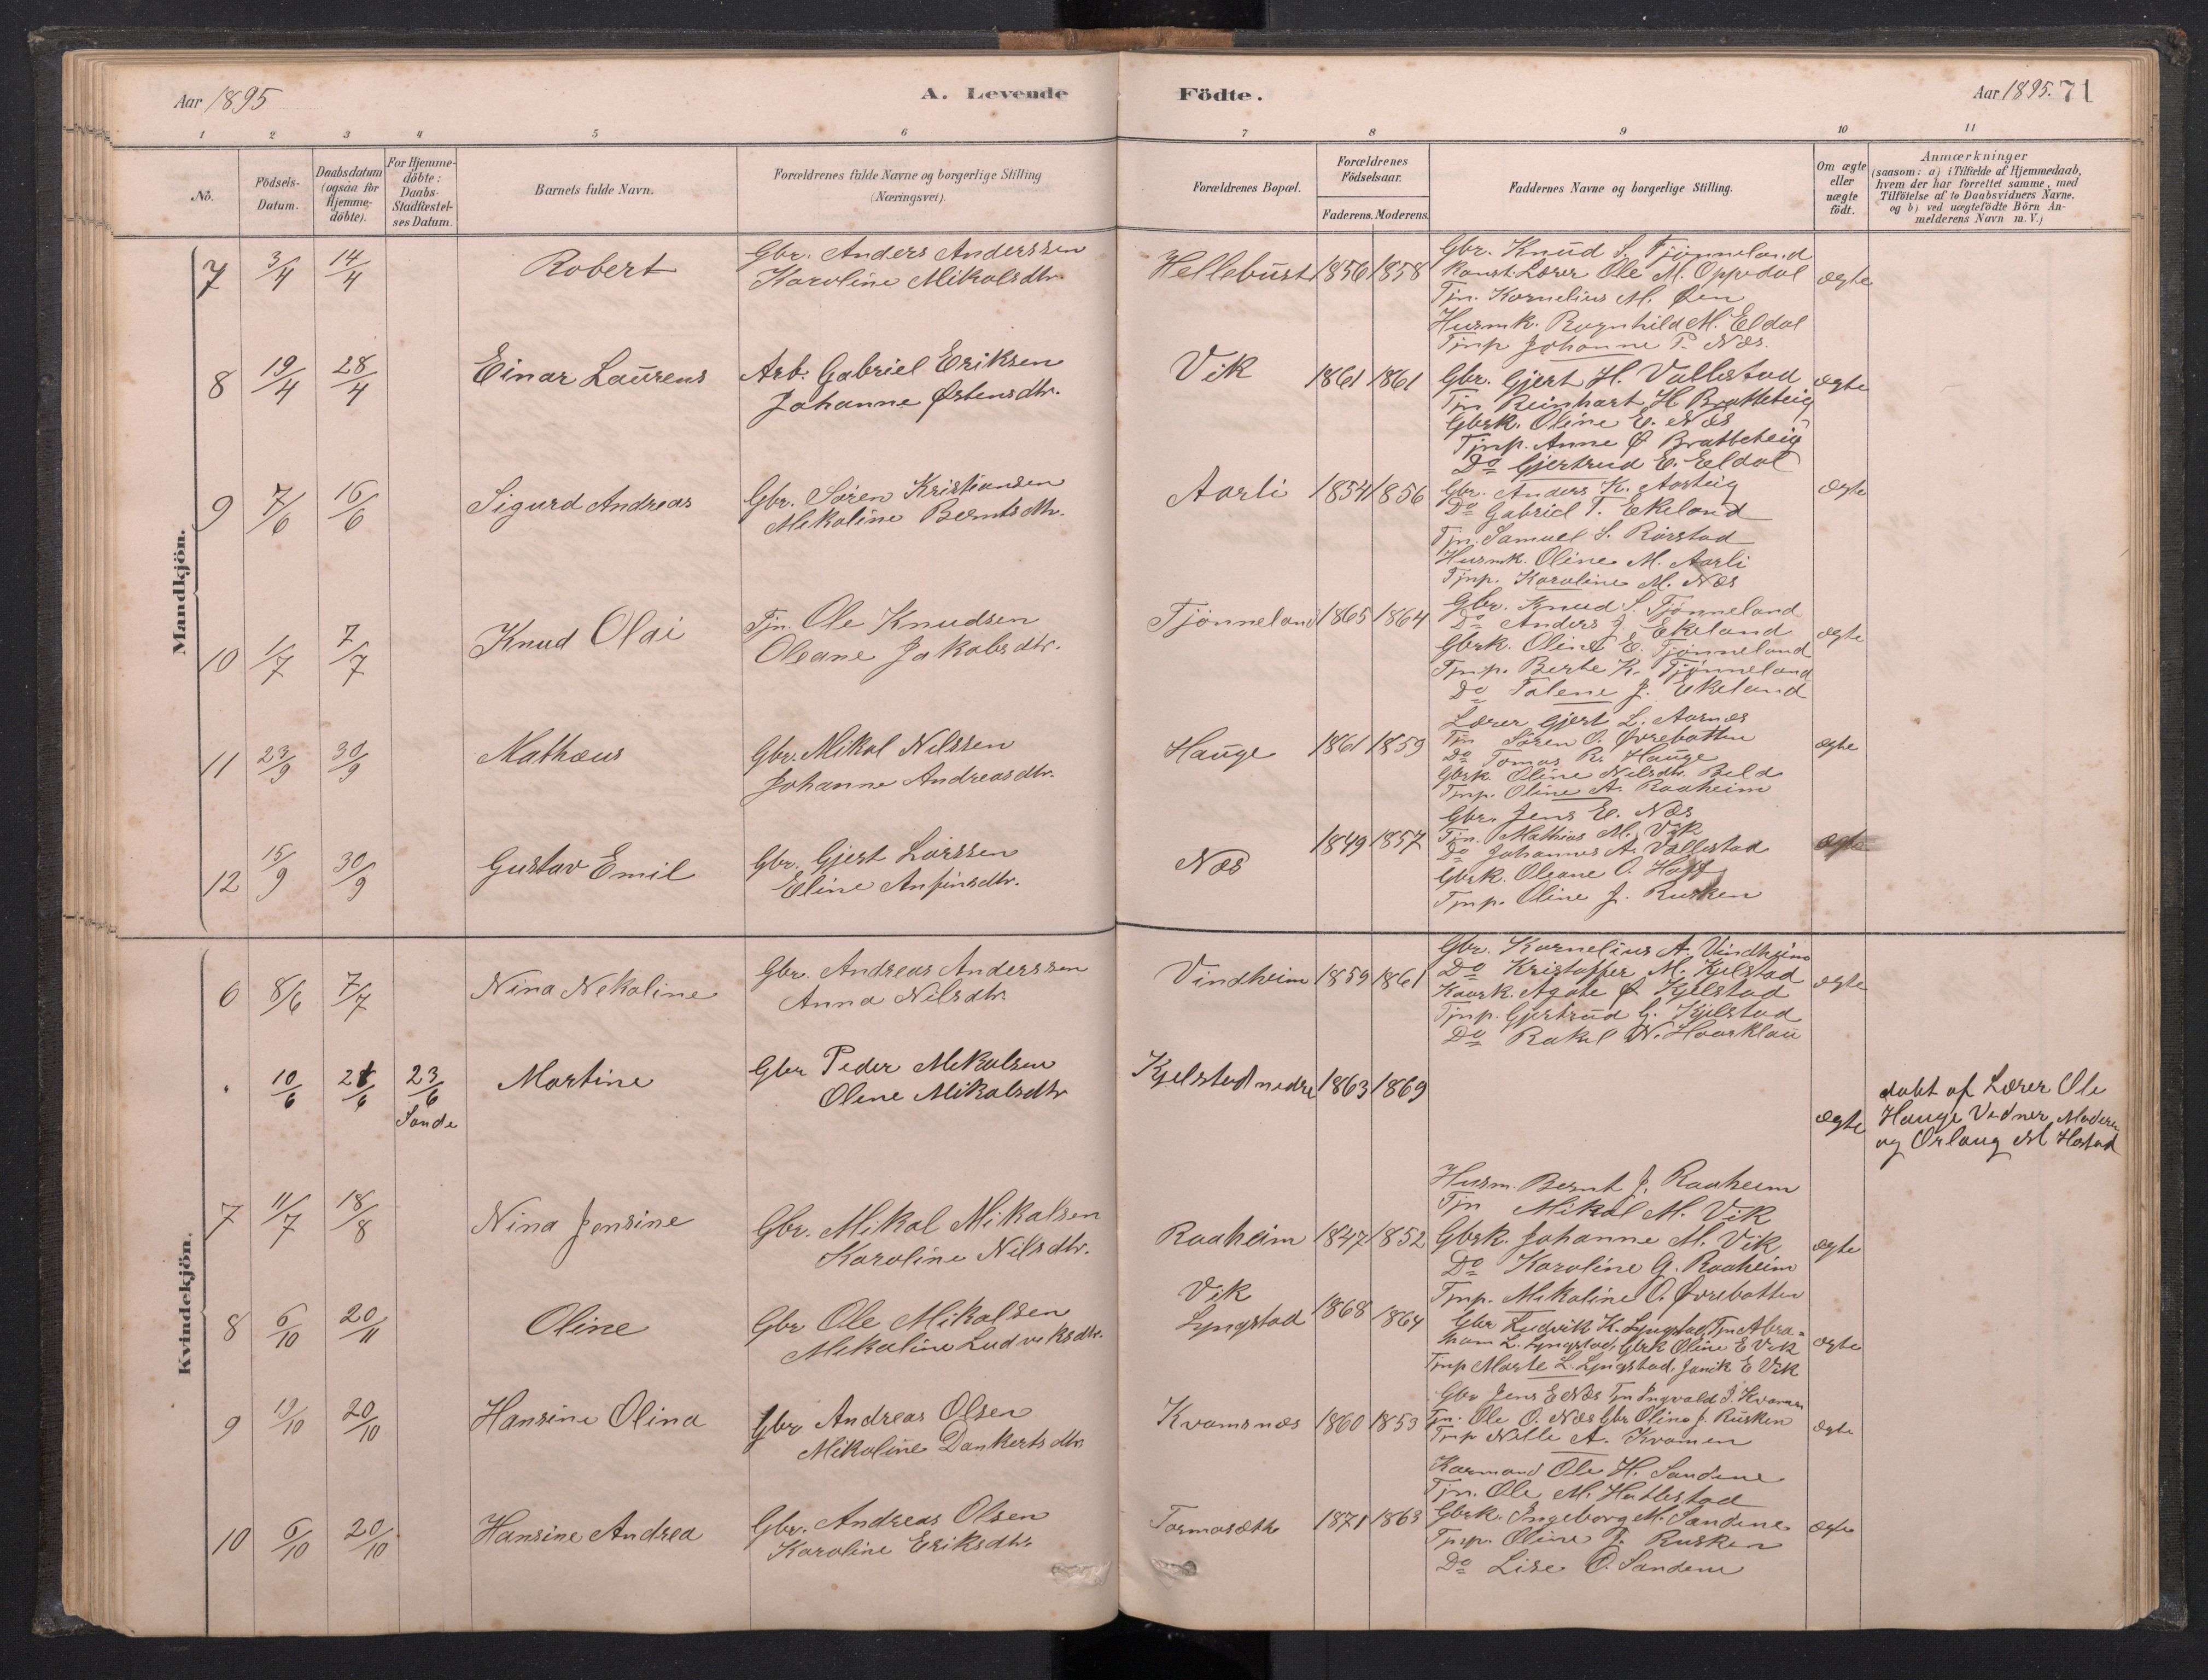 Aar 1895
A. Levende Födte.
Aar 1895. 71
1 2 3 4 5 6 7 8 9 10 11
No.
Födsels-Datum.
Daabsdatum (ogsaa for Hjemme-döbte).
For Hjemme-döbte: Daabs-Stadfæstel-ses Datum.
Barnets fulde Navn.
Forældrenes fulde Navne og borgerlige Stilling (Næringsvei).
Forældrenes Bopæl.
Forældrenes Födselsaar.
Faderens. Moderens.
Faddernes Navne og borgerlige Stilling.
Om ægte eller uægte födt.
Anmærkninger (saasom: a) i Tilfælde af Hjemmedaab, hvem der har forrettet samme, med Tilföielse af to Daabsvidners Navne, og b) ved uægtefödte Börn An-melderens Navn m. V.)
Mandkjön.
7 3/4 14/4 Robert
Gbr. Anders Anderssen
Karoline Mikalsdtr.
Hellebust 1856 1858
Gbr. Knud S. Tjønneland
Konst. Lærer Ole M. Oppedal
Tjn. Kornelius M. Øen
Husmk. Ragnhild M. Eldal
Tjnp Johanne P. Næs.
ægte
8 19/4 28/4 Einar Laurens
Arb. Gabriel Eriksen
Johanne Østensdtr.
Vik 1861 1861
Gbr. Gjert H. Vallestad
Tjn Reinhart H Bratteteig
Gbrk. Oline E. Næs
Tjnp. Anne Ø Bratteteig
Do Gjertrud E. Eldal
ægte
9 7/6 16/6 Sigurd Andreas
Gbr. Søren Kristiansen
Mikaline Berntsdtr.
Aarli 1854 1856
Gbr. Anders K. Aarteig
Do Gabriel T. Ekeland
Tjn. Samuel S. Rørstad
Husmk. Oline M. Aarli
Tjnp. Karoline M. Næs
ægte
10 1/7 7/7 Knud Olai
Tjn. Ole Knudsen
Oleane Jakobsdtr.
Tjønneland 1865 1864
Gbr. Knud S. Tjønneland
Do Anders J. Ekeland
Gbrk. Oline E. Tjønneland
Tjnp. Berte K. Tjønneland
Do Talene J. Ekeland
ægte
11 23/9 30/9 Mathæus
Gbr. Mikal Nilssen
Johanne Andreasdtr.
Hauge 1861 1859
Lærer Gjert L. Aarnæs
Tjn Søren O. Øvrebotten
Do Tomas R. Hauge
Gbrk Oline Nilsdtr. Beld
Tjnp. Oline A. Raaheim
ægte
12 15/9 30/9 Gustav Emil
Gbr. Gjert Larssen
Eline Anfinsdtr.
Næs 1849 1857
Gbr. Jens E. Næs
Tjn. Mathias M. Vik
Do Johannes A. Vallestad
Gbrk. Oleane O. Hoff
Tjnp. Oline J. Rusken
ægte
Kvindekjön.
6 8/6 7/7 Nina Nekoline
Gbr. Andreas Anderssen
Anna Nilsdtr
Vindheim 1859 1861
Gbr. Kornelius A. Vindheim
Do Kristoffer M. Kjelstad
Kaark. Agate Ø Kjelstad
Tjnp. Gjertrud G. Kjelstad
Do Rakel N. Haarklau
ægte
10/6 23/6 Sande Martine
Gbr Peder Mikalsen
Olene Mikalsdtr
Kjelstad nedre 1863 1869
ægte
døbt af Lærer Ole
Hauge Vidner Moderen
og Ørlaug M Hestad
7 11/7 18/8 Nina Jensine
Gbr. Mikal Mikalsen
Karoline Nilsdtr.
Raaheim 1847 1852
Husm. Bernt J. Raaheim
Tjn Mikal M. Vik
Gbrk. Johanne M. Vik
Do Karoline G. Raaheim
Tjnp. Mikaline O. Øvrebotten
ægte
8 6/10 20/11 Oline
Gbr Ole Mikalsen
Mikaline Ludviksdtr.
Vik
Lyngstad 1868 1864
Gbr Ludvik K. Lyngstad, Tjn Abra-
ham L. Lyngstad, Gbrk Oline E Vik
Tjnp Marte L. Lyngstad, Janik E Vik
ægte
9 19/10 20/10 Hansine Olina
Gbr Andreas Olsen
Mikaline Dankertsdtr
Kvamsnæs 1860 1853
Gbr Jens E Næs Tjn Ingvald J. Kvamen
Tjn. Ole O. Næs Gbr Olina J. Rusken
Tjnp Nille A. Kvamen
ægte
10 6/10 20/10 Hansine Andrea
Gbr. Andreas Olsen
Karoline Eriksdtr
Tormasæth 1871 1863
Karmand Ole H. Sandene
Tjn. Ole M. Hatlestad
Gbrk. Ingeborg M. Sandene
Tjnp. Oline J. Rusken
Do Lise O. Sandene
ægte